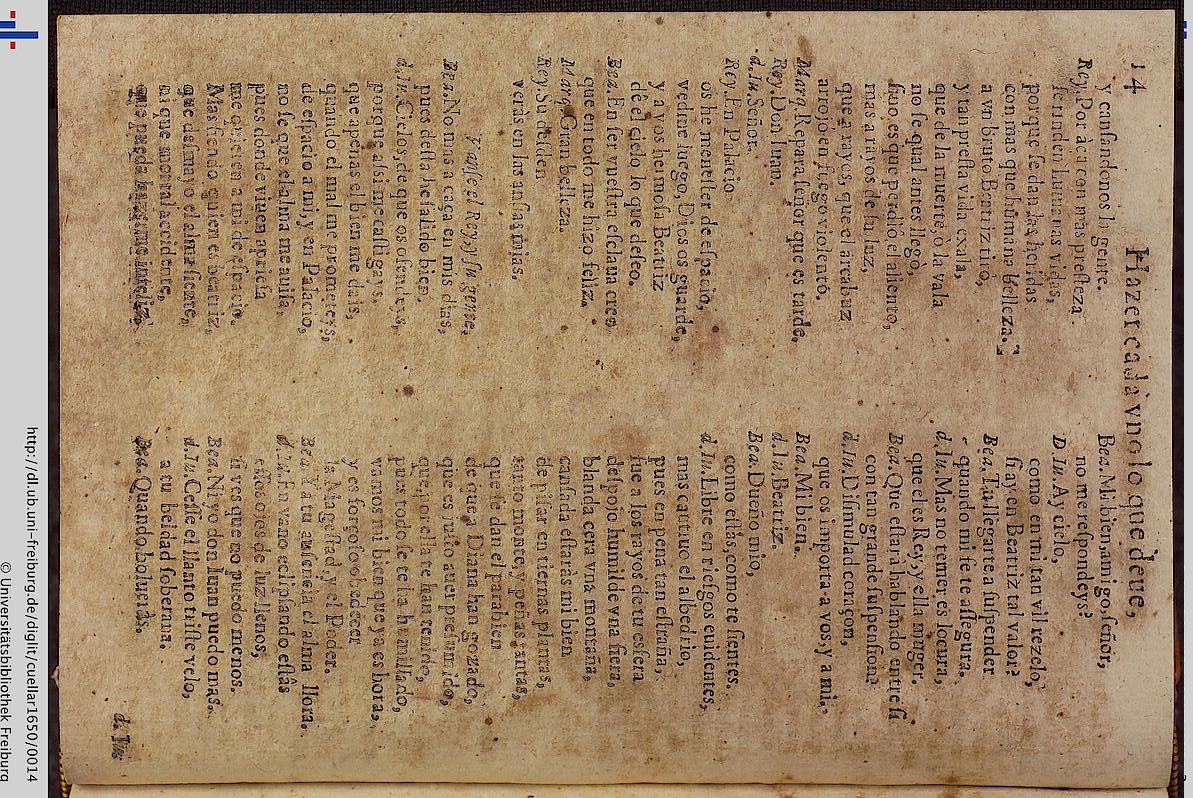 14
Hazer cada vno lo que deue,
y cansandonos la gente.
Rey. Por acá con mas presteza
se rinden humanas vidas,
porque se dan las heridas
con mas que humana belleza.
a vn bruto Beatriz tirò,
y tan presta vida exala,
que de la muerte, ò la vala
no sè qual antes llegò,
sino es que perdiò el aliento,
mas a rayos de su luz,
que a rayos, que el arcabuz
arrojò en fuego violento.
Marq. Repara señor que es tarde,
Rey. Don Iuan.
d. Iu. Señor.
Rey. En Palacio
os he menester de espacio,
vedme luego, Dios os guarde,
y a vos hermosa Beatriz
dè el cielo lo que deseo.
Bea. En ser vuestra esclaua creo
que en todo me hizo feliz.
Marq. Gran belleza.
Rey. Su desden
verás en las ansias mias.
Vanse el Rey, y su gente,
Bea. No mas a caça en mis dias,
pues desta he salido bien.
d. Iu. Cielos, de que os ofendeys,
porque assi me castigays,
que apenas el bien me dais,
quando el mal me prometeys,
de espacio a mi, y en Palacio,
no se que el alma me auisa,
pues donde viuen apriesa
me quieren a mi de espacio.
Mas siendo quien es Beatriz,
que desmayo el alma siente,
ni que mortal accidente,
que pueda hazerme infeliz?
Bea. Mi bien, amigo, señor,
no me respondeys?
D. Iu. Ay cielo,
como en mi tan vil rezelo,
si ay en Beatriz tal valor?
Bea. Tu llegarte a suspender
quando mi fe te assegura.
d. Iu. Mas no temer es locura,
que el es Rey, y ella muger.
Bea. Que estarà hablando entre si
con tan grande suspension?
d. Iu. Dissimulad coraçon,
que os importa a vos, y a mi.
Bea. Mi bien.
d. Iu. Beatriz.
Bea. Dueño mio,
como estàs, como te sientes.
d. Iu. Libre en riesgos euidentes,
mas cautiuo el albedrio,
pues en pena tan estraña,
fue a los rayos de tu esfera
despojo humilde vna fiera,
blanda cera vna montaña,
cansada estaràs mi bien
de pisar en tiernas plantas,
tanto monte, y peñas tantas,
que se dan el parabien
de que a Diana han gozado,
que es mio auer presumido,
que por ella te han tenido,
pues todo se te ha humillado,
vamos mi bien que ya es hora,
y es forçoso obedecer
la Magestad, y el Poder.
Bea. Y a tu ausencia el alma llora.
d. Iu. En vano eclipsando estàs
essos ojos de luz llenos,
si ves que no puedo menos.
Bea. Ni yo don Iuan puedo mas.
d. Iu. Cesse el llanto triste velo,
a tu beldad soberana.
Bea. Quando bolueràs.
d. Iu.
http://dl.ub.uni-freiburg.de/diglit/cuellar1650/0014
© Universitätsbibliothek Freiburg